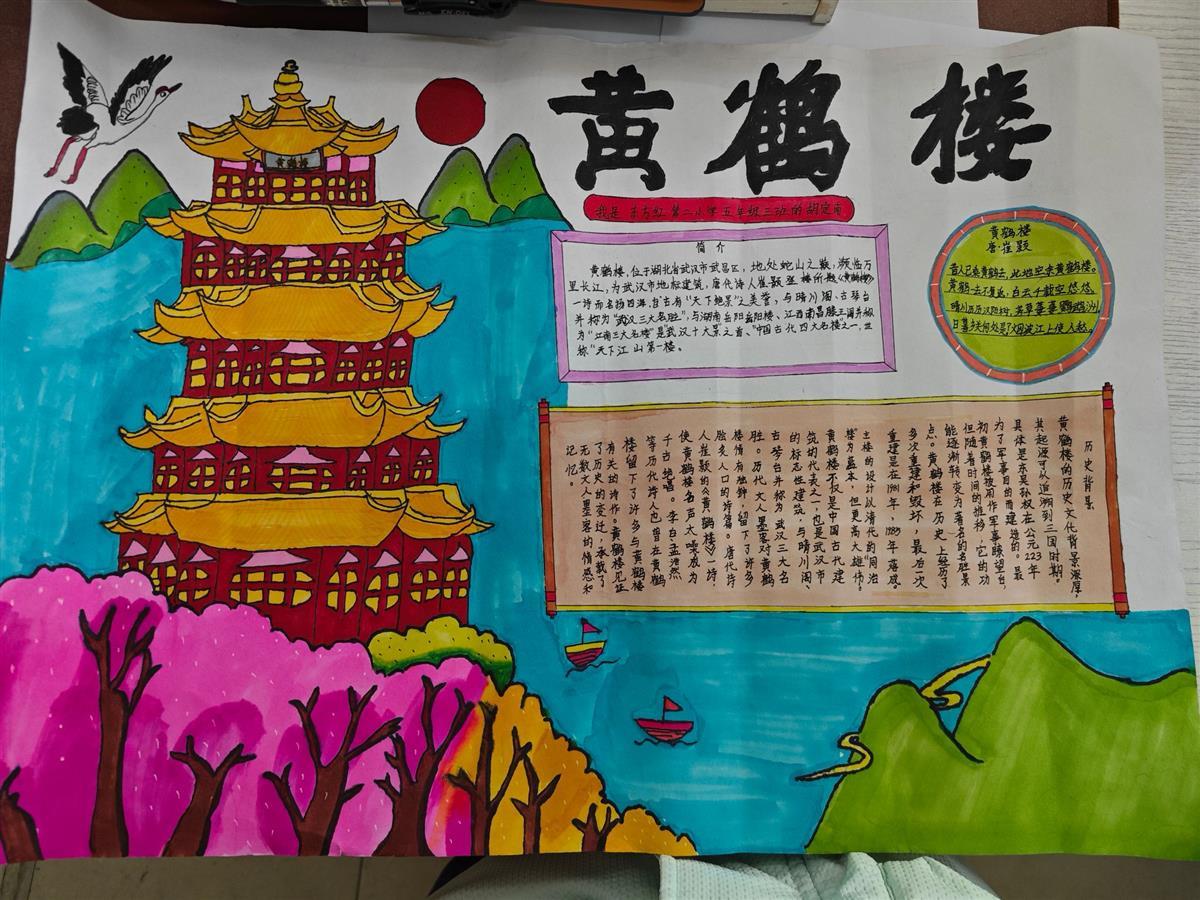 黄鹤楼
黄鹤楼
我是东方红第二小学五年级三班的胡定南
简介
黄鹤楼,位于湖北省武汉市武昌区,地处蛇山之巅,濒临万
里长江,为武汉市地标建筑,唐代诗人崔颢登楼所题《黄鹤楼》
一诗而名扬四海,自古有“天下绝景”之美誉,与晴川阁、古琴台
并称为“武汉三大名胜”,与湖南岳阳岳阳楼、江西南昌滕王阁并称
为“江南三大名楼”是武汉十大景之首、“中国古代四大名楼之一,世
称“天下江山第一楼。
黄鹤楼
唐·崔颢
昔人已乘黄鹤去,此地空余黄鹤楼。
黄鹤一去不复返,白云千载空悠悠。
晴川历历汉阳树,芳草萋萋鹦鹉洲。
日暮乡关何处是?烟波江上使人愁。
历史背景
黄鹤楼的历史文化背景深厚,
其起源可以追溯到三国时期。
具体是东吴孙权在公元223年
为了军事目的而建造的。最
初黄鹤楼被用作军事瞭望台,
但随着时间的推移,它的功
能逐渐转变为著名的名胜景
点。黄鹤楼在历史上经历了
多次重建和毁坏,最后一次
重建是在1981年,1985年落成。
主楼的设计以清代的“同治
楼”为蓝本,但更高大雄伟。
黄鹤楼不仅是中国古代建
筑的代表之一,也是武汉市
的标志性建筑,与晴川阁、
古琴台并称为武汉三大名
胜。历代文人墨客对黄鹤
楼情有独钟,留下了许多
脍炙人口的诗篇。唐代诗
人崔颢的《黄鹤楼》一诗
使黄鹤楼名声大噪成为
千古绝唱。李白孟浩然
等历代诗人也曾在黄鹤
楼留下了许多与黄鹤楼
有关的诗作。黄鹤楼见证
了历史的变迁,承载了
无数文人墨客的情感和
记忆。